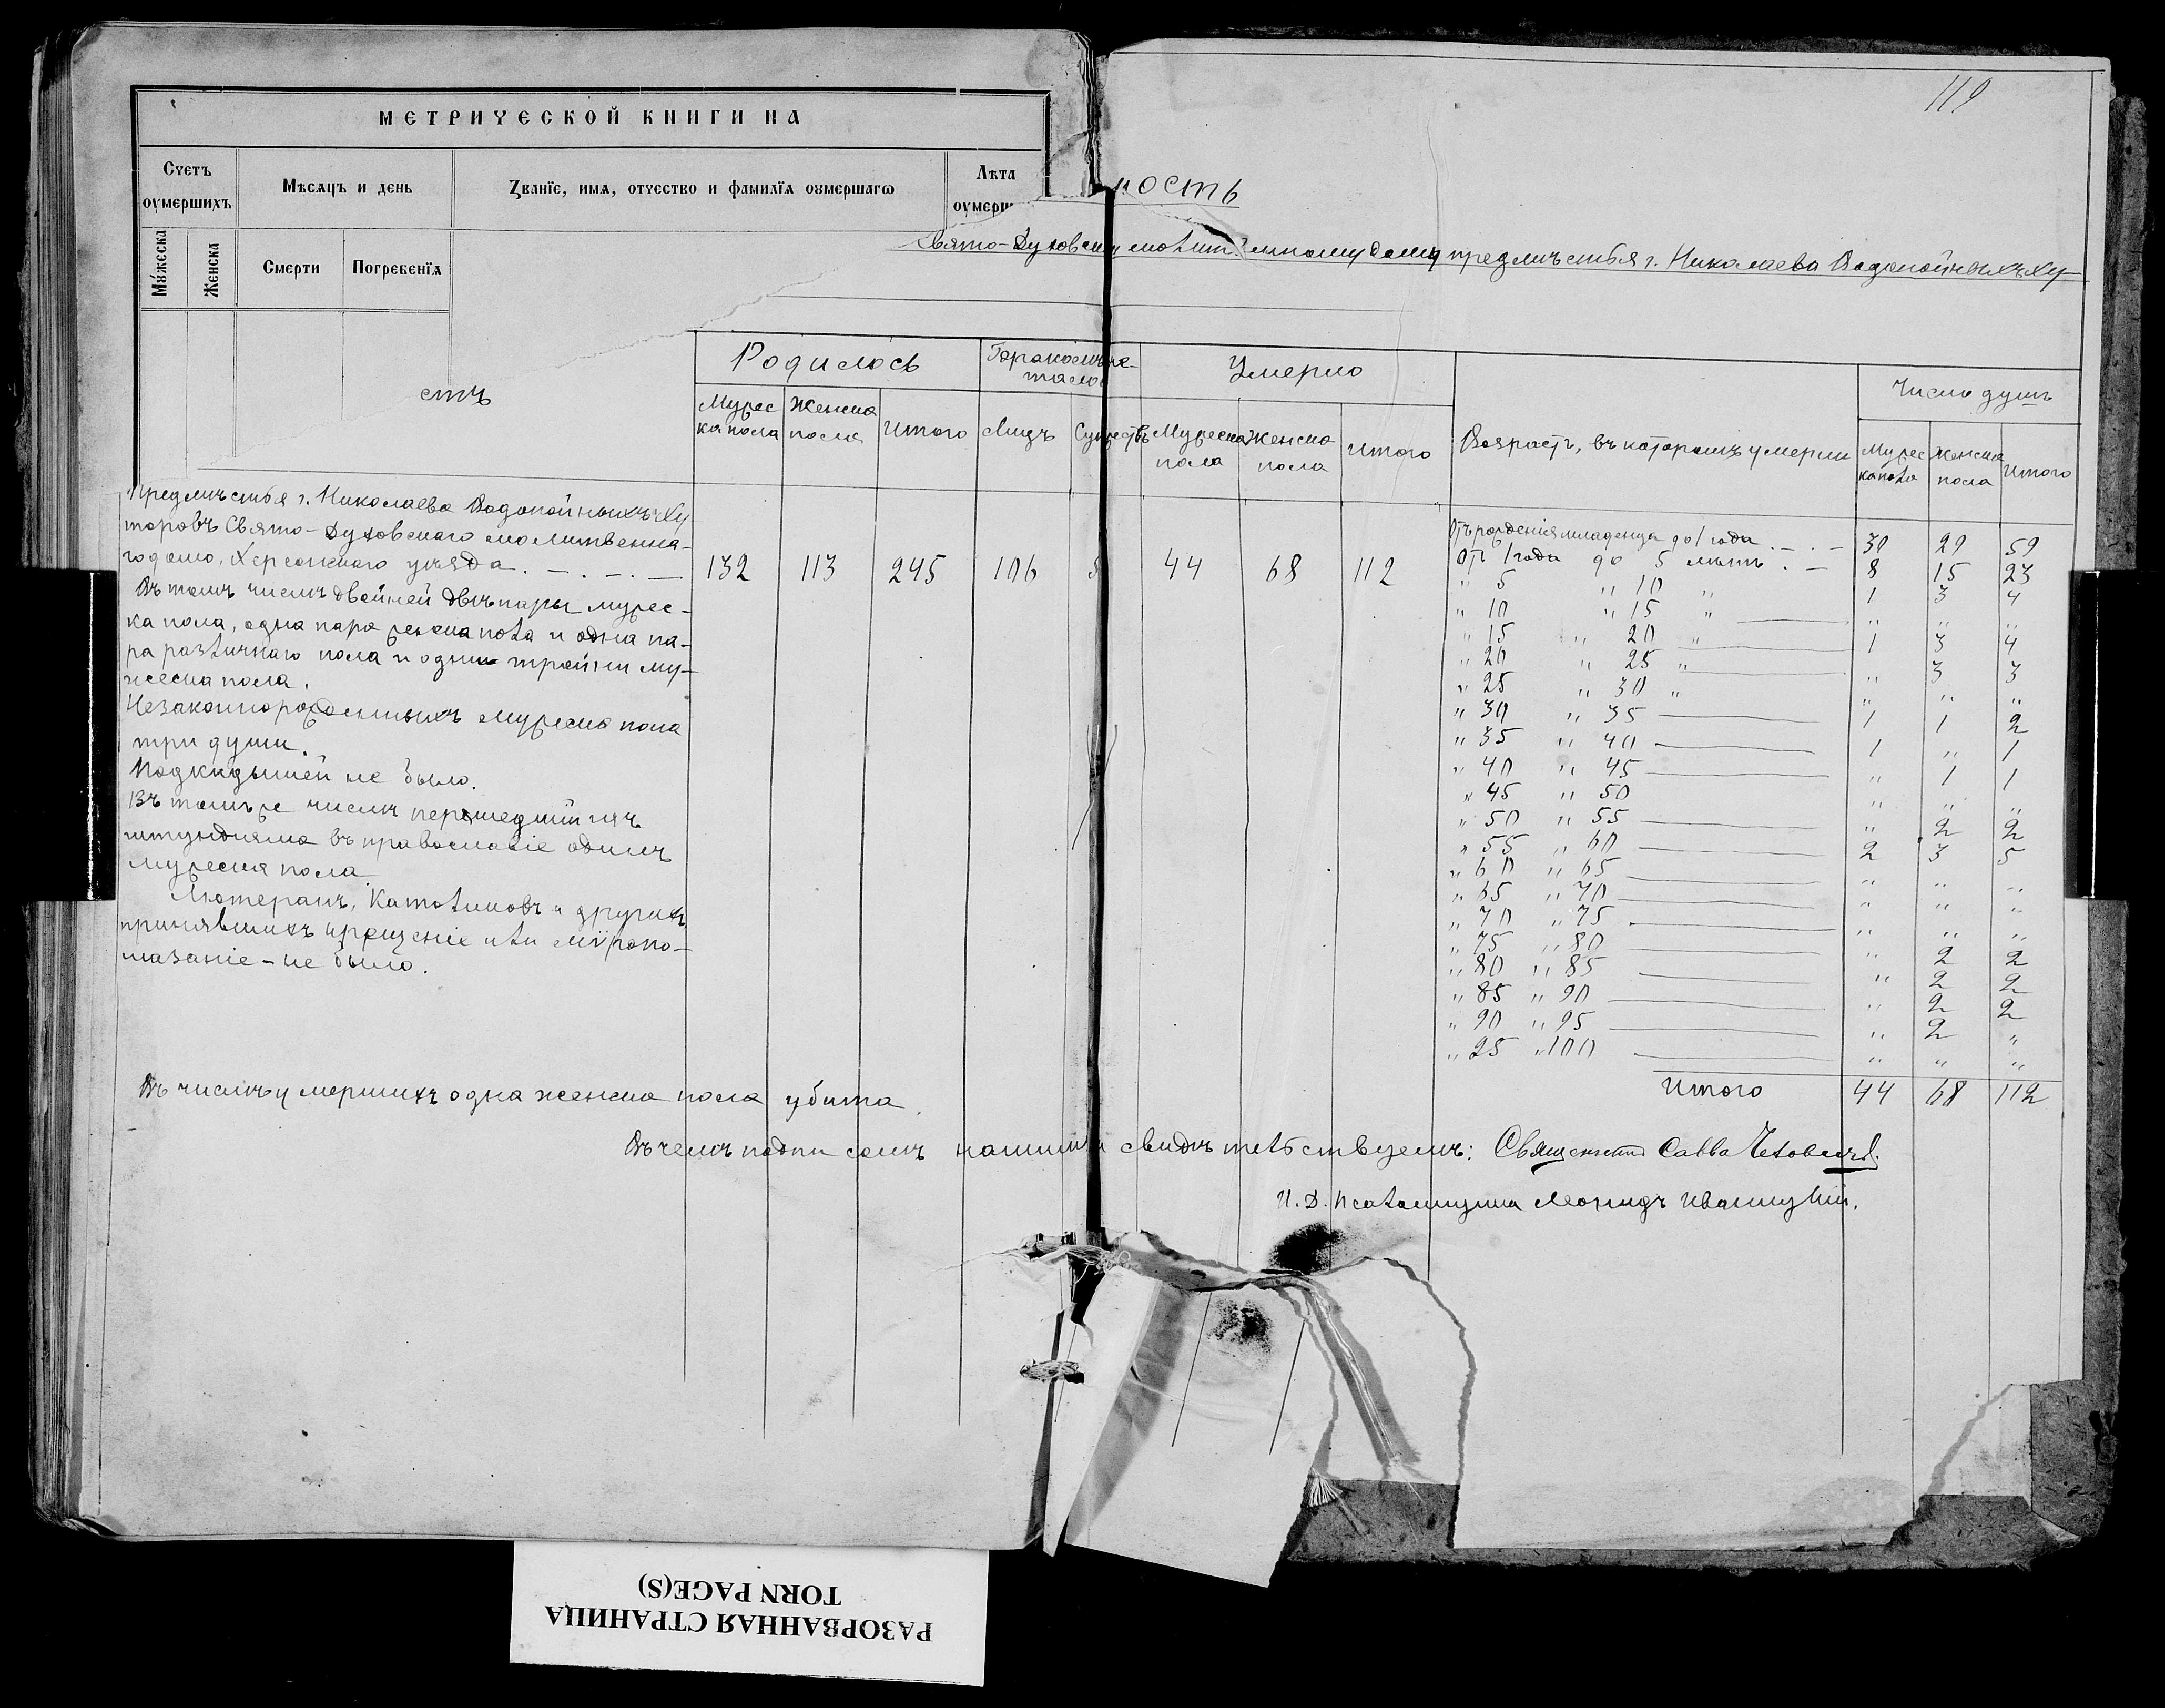 119
МЕТРИЧЕСКОЙ КНИГИ НА
Счетъ оумершихъ
Мѣсяцъ и день
Званїе, имя, отчество и фамилїя оумершагѡ
Лѣта оумерш
Мужеска
Женска
Смерти
Погребенїя
ность
Свято-Духовскому молитвенному дому предмѣстья г. Николаева Водопойныхъ Ху-
стъ
Родилось
Бракосочеталось
Умерло
Число душъ
Мужеска пола
Женска пола
Итого
Лицъ
Супруж
Мужеска пола
Женска пола
Итого
Возрастъ, въ которомъ умерли
Мужеска пола
Женска пола
Итого
Предмѣстья г. Николаева Водопойныхъ Ху
торовъ Свято-Духовскаго молитвенна-
го дома, Херсонскаго уѣзда . — . — . —
132 113 245 106 44 68 112
Въ томъ числѣ двойней двѣ пары мужес-
ка пола, одна пара женска пола и одна па-
ра различнаго пола и одни тройни му-
жеска пола.
Незаконнорожденныхъ мужеска пола
три души.
Подкидышей не было.
Въ томъ же числѣ перешедшій изъ
штундизма въ православіе одинъ
мужеска пола
Лютеранъ, Католиковъ и другихъ
принявшихъ крещеніе или мѵропо-
мазаніе - не было.
Отъ рожденія младенца до 1 года . — . — 30 29 59
От 1 года до 5 лѣтъ . — 8 15 23
" 5 " 10 " 1 3 4
" 10 " 15 " " " "
" 15 " 20 " 1 3 4
" 20 " 25 " " 3 3
" 25 " 30 " " " "
" 30 " 35 1 1 2
" 35 " 40 1 " 1
" 40 " 45 " 1 1
" 45 " 50 " " "
" 50 " 55 " 2 2
" 55 " 60 2 3 5
" 60 " 65 " " "
" 65 " 70 " " "
" 70 " 75 " " "
" 75 " 80 " 2 2
" 80 " 85 " 2 2
" 85 " 90 " 2 2
" 90 " 95 " 2 "
" 95 " 100 " " "
Итого 44 68 112
Въ числѣ умершихъ одна женска пола убита.
Въ чемъ подписомъ нашимъ свидѣтельствуемъ: Священникъ Савва
И. Д. Псаломщика Леонидъ Иваницкій.
РАЗОРВАННАЯ СТРАНИЦА
TORN PAGE(S)